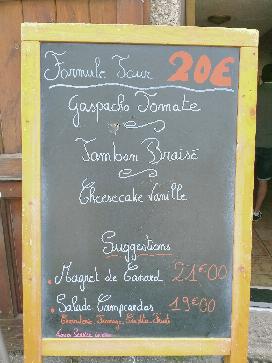 Formule Jour 20€
Gaspacho Tomate
Jambon Braisé
Cheesecake Vanille
Suggestions
. Magret de Canard 21€00
. Salade Campcardos 19€00